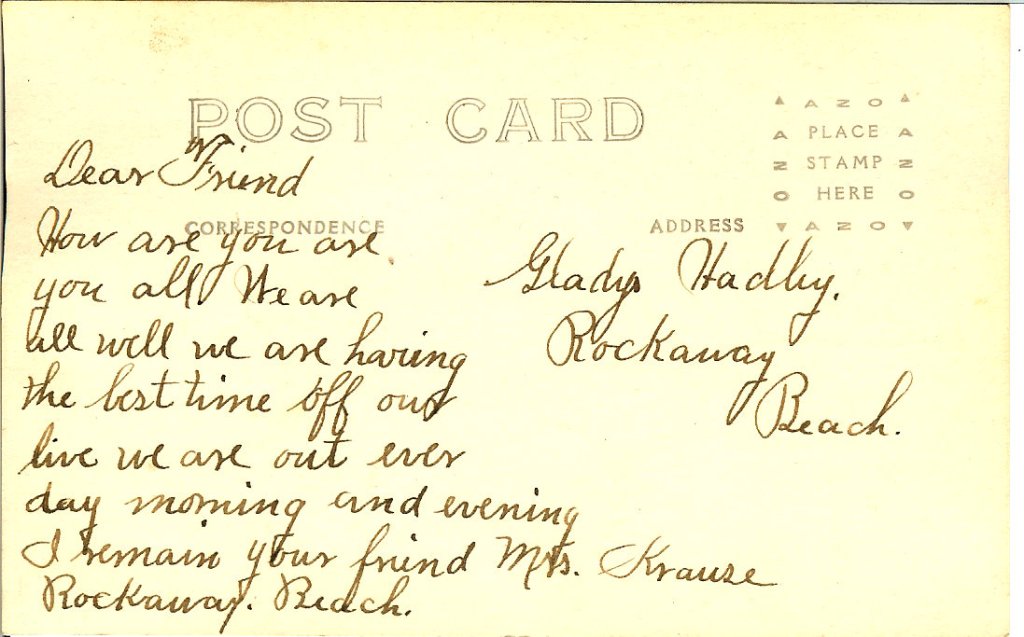 POST CARD
A Z O
A PLACE A
Z STAMP Z
O HERE O
A Z O
CORRESPONDENCE
ADDRESS
Dear Friend
How are you are
you all. We are
all well we are having
the best time off our
live we are out ever
day morning and evening
I remain your friend Mrs. Krause
Rockaway. Beach.
Gladys Hadley.
Rockaway
Beach.